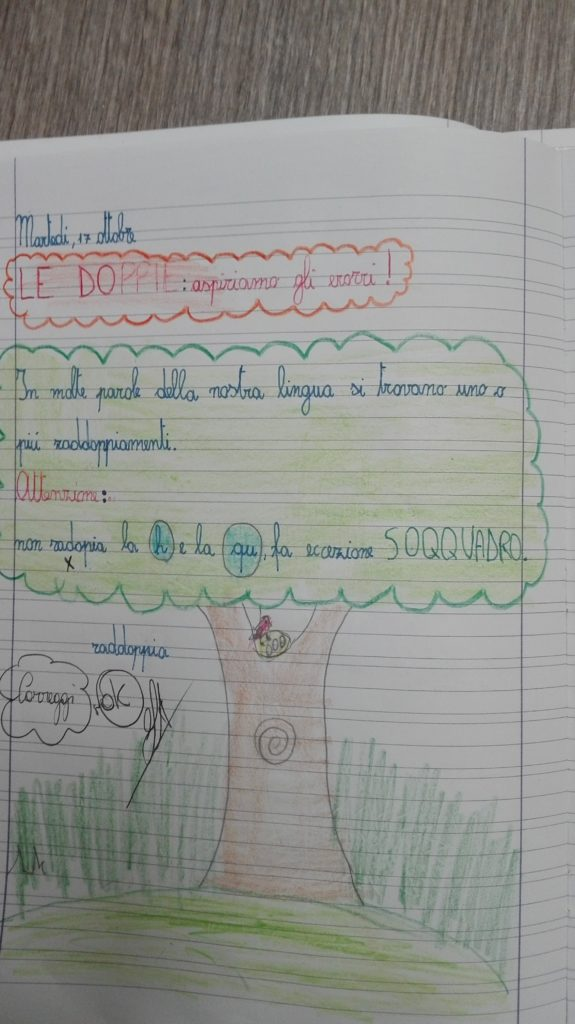 Martedì, 17 ottobre
LE DOPPIE: aspiriamo gli errori!
In molte parole della nostra lingua si trovano uno o
più raddoppiamenti.
Attenzione:
non radopia la h e la qu, fa eccezione SOQQUADRO.
x
raddoppia
Correggi
OK